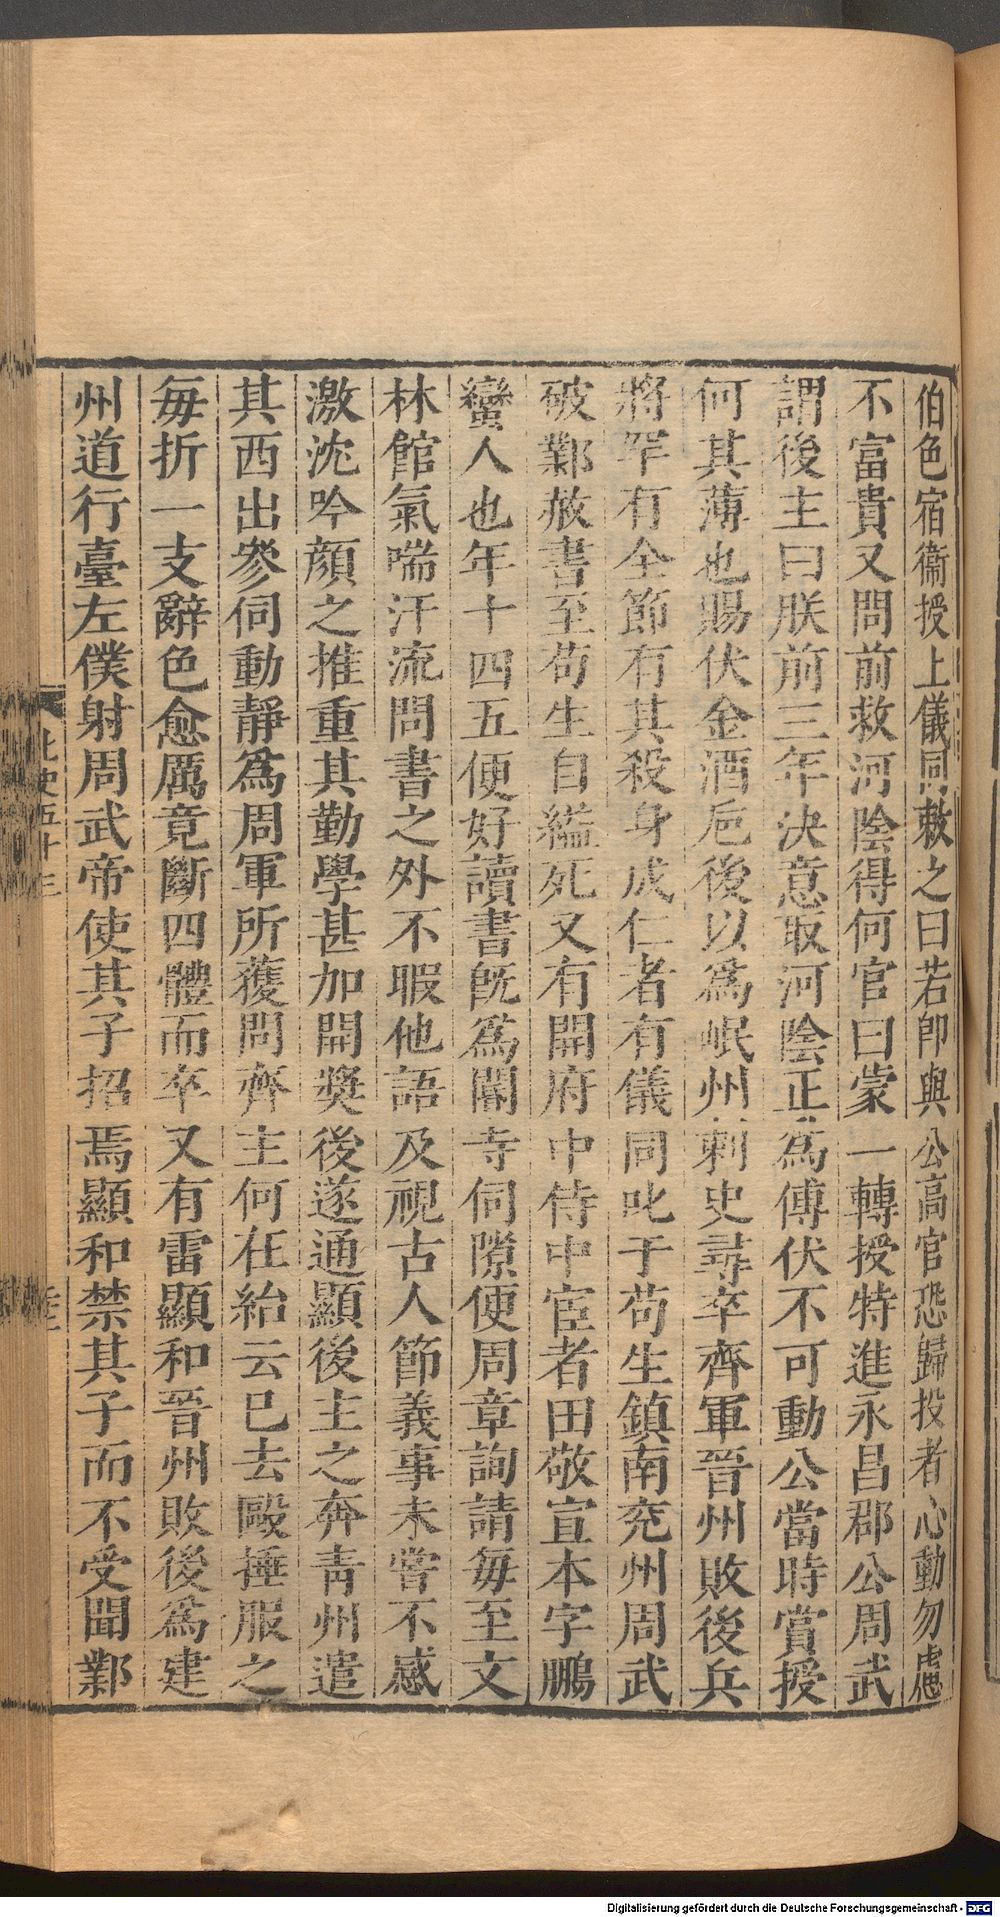 伯色宿衞授上儀同敕之曰若即與公高官恐歸投者心動勿慮
不富貴又問前救河陰得何官曰蒙一轉授特進永昌郡公周武
謂後主曰朕前三年决意取河陰正爲傅伏不可動公當時賞授
何其薄也賜伏金酒巵後以爲岷州刺史尋卒齊軍晉州敗後兵
將罕有全節有其殺身成仁者有儀同叱于苟生鎮南兖州周武
破鄴赦書至苟生自縊死又有開府中侍中宦者田敬宣本字鵬
蠻人也年十四五便好讀書旣爲閽寺伺隙便周章詢請每至文
林館氣喘汗流問書之外不暇他語及視古人節義事未嘗不感
激沈吟顏之推重其勤學甚加開奬後遂通顯後主之奔青州遣
其西出參伺動靜爲周軍所獲問齊主何在紿云已去毆捶服之
每折一支辭色愈厲竟斷四體而卒又有雷顯和晉州敗後爲建
州道行臺左僕射周武帝使其子招焉顯和禁其子而不受聞鄴
北史五十三
Digitalisierung gefördert durch die Deutsche Forschungsgemeinschaft - DFG